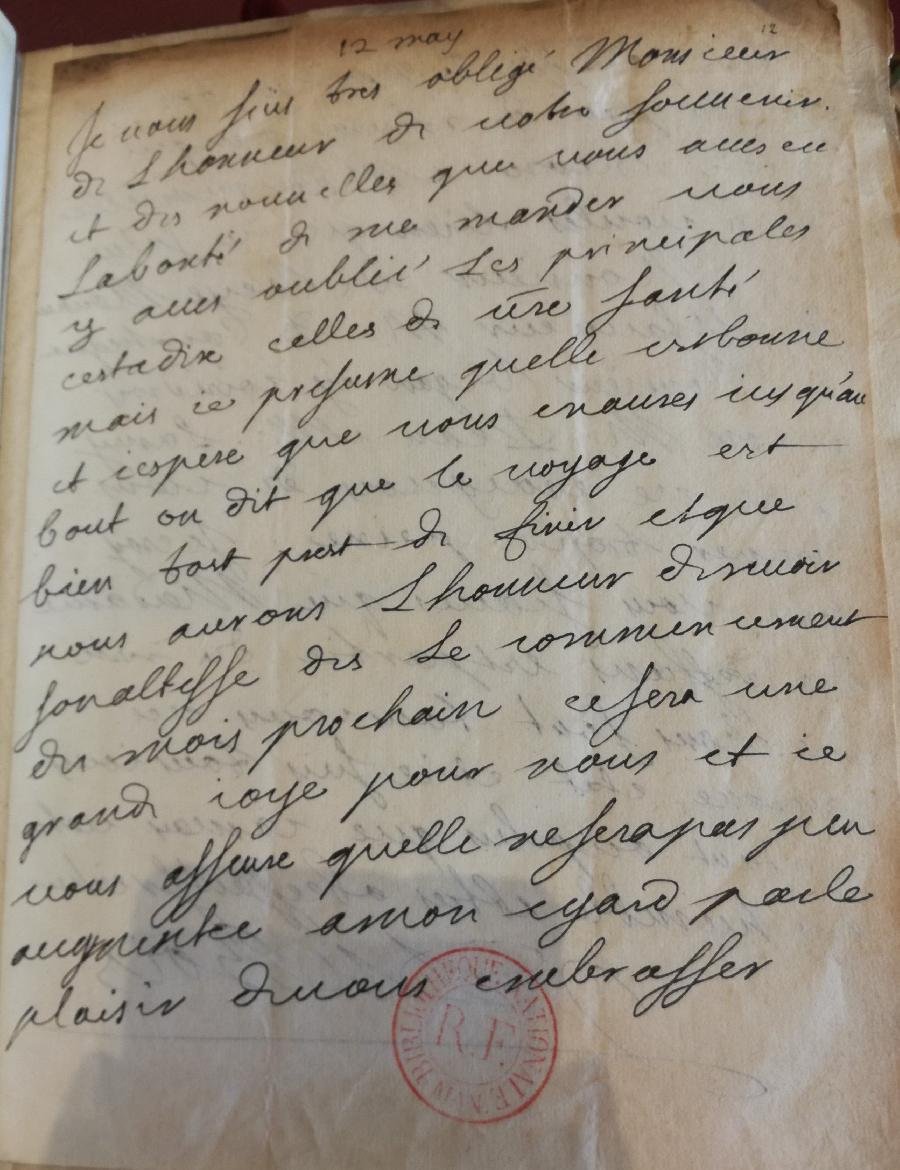 12 may
12
Je vous suis tres obligé Monsieur
de Lhonneur de votre souuenir.
et des nouuelles que vous aues eu
Labonté de me mander vous
y aues oublié Les principales
cestadire celles de vre santé
mais ie presume quelle estbonne
et iespere que vous enaures iusqu'au
bout on dit que le voyage est
bien tost prest de finir etque
nous aurons Lhonneur dereuoir
sonaltesse des Le commencement
du mois prochain cesera une
grande ioye pour nous et ie
vous asseure quelle neserapas peu
augmentee amon egard parle
plaisir deuous embrasser
BIBLIOTHEQUE NATIONALE MSS
R.F.